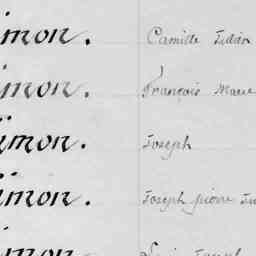 imon. Camille Isidor
imon. François Marie
imon. Joseph
imon. Joseph pierre
imon.